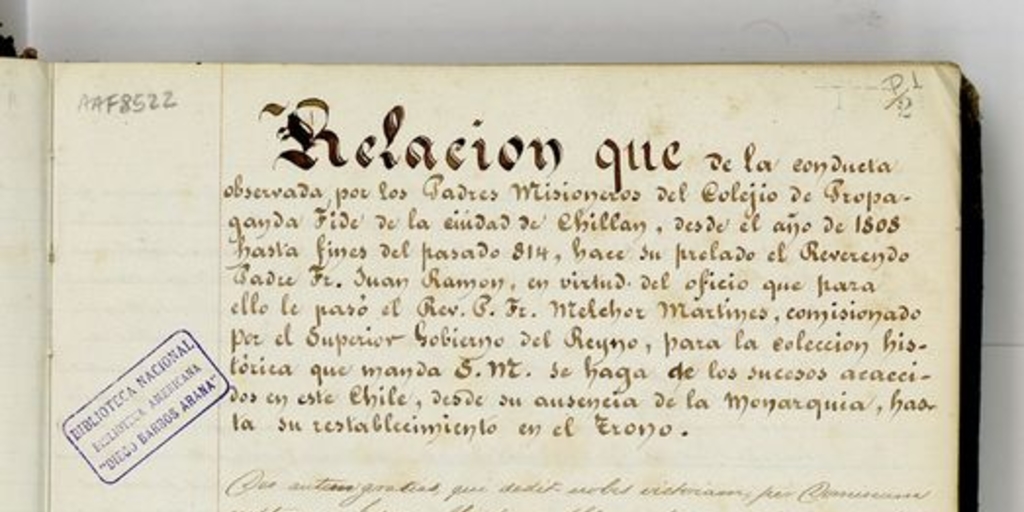 AAF8522
P.1
Relacion que de la conducta
observada por los Padres Misioneros del Colejio de Propa-
ganda Fide de la ciudad de Chillan, desde el año de 1808
hasta fines del pasado 814, hace su prelado el Reverendo
Padre Fr. Juan Ramon, en virtud del oficio que para
ello le pasó el Rev. P. Fr. Melchor Martines, comisionado
por el Superior Gobierno del Reyno, para la coleccion his-
tórica que manda S. M. se haga de los sucesos acaeci-
dos en este Chile, desde su ausencia de la Monarquia, has-
ta su restablecimiento en el Trono.
BIBLIOTECA NACIONAL
BIBLIOTECA AMERICANA
"DIEGO BARROS ARANA"
Deo autem gratias, qui dedit nobis victoriam, per Dominum